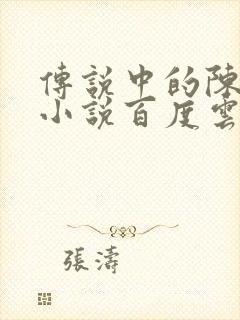 傳說中的陳
小說百度雲
張濤